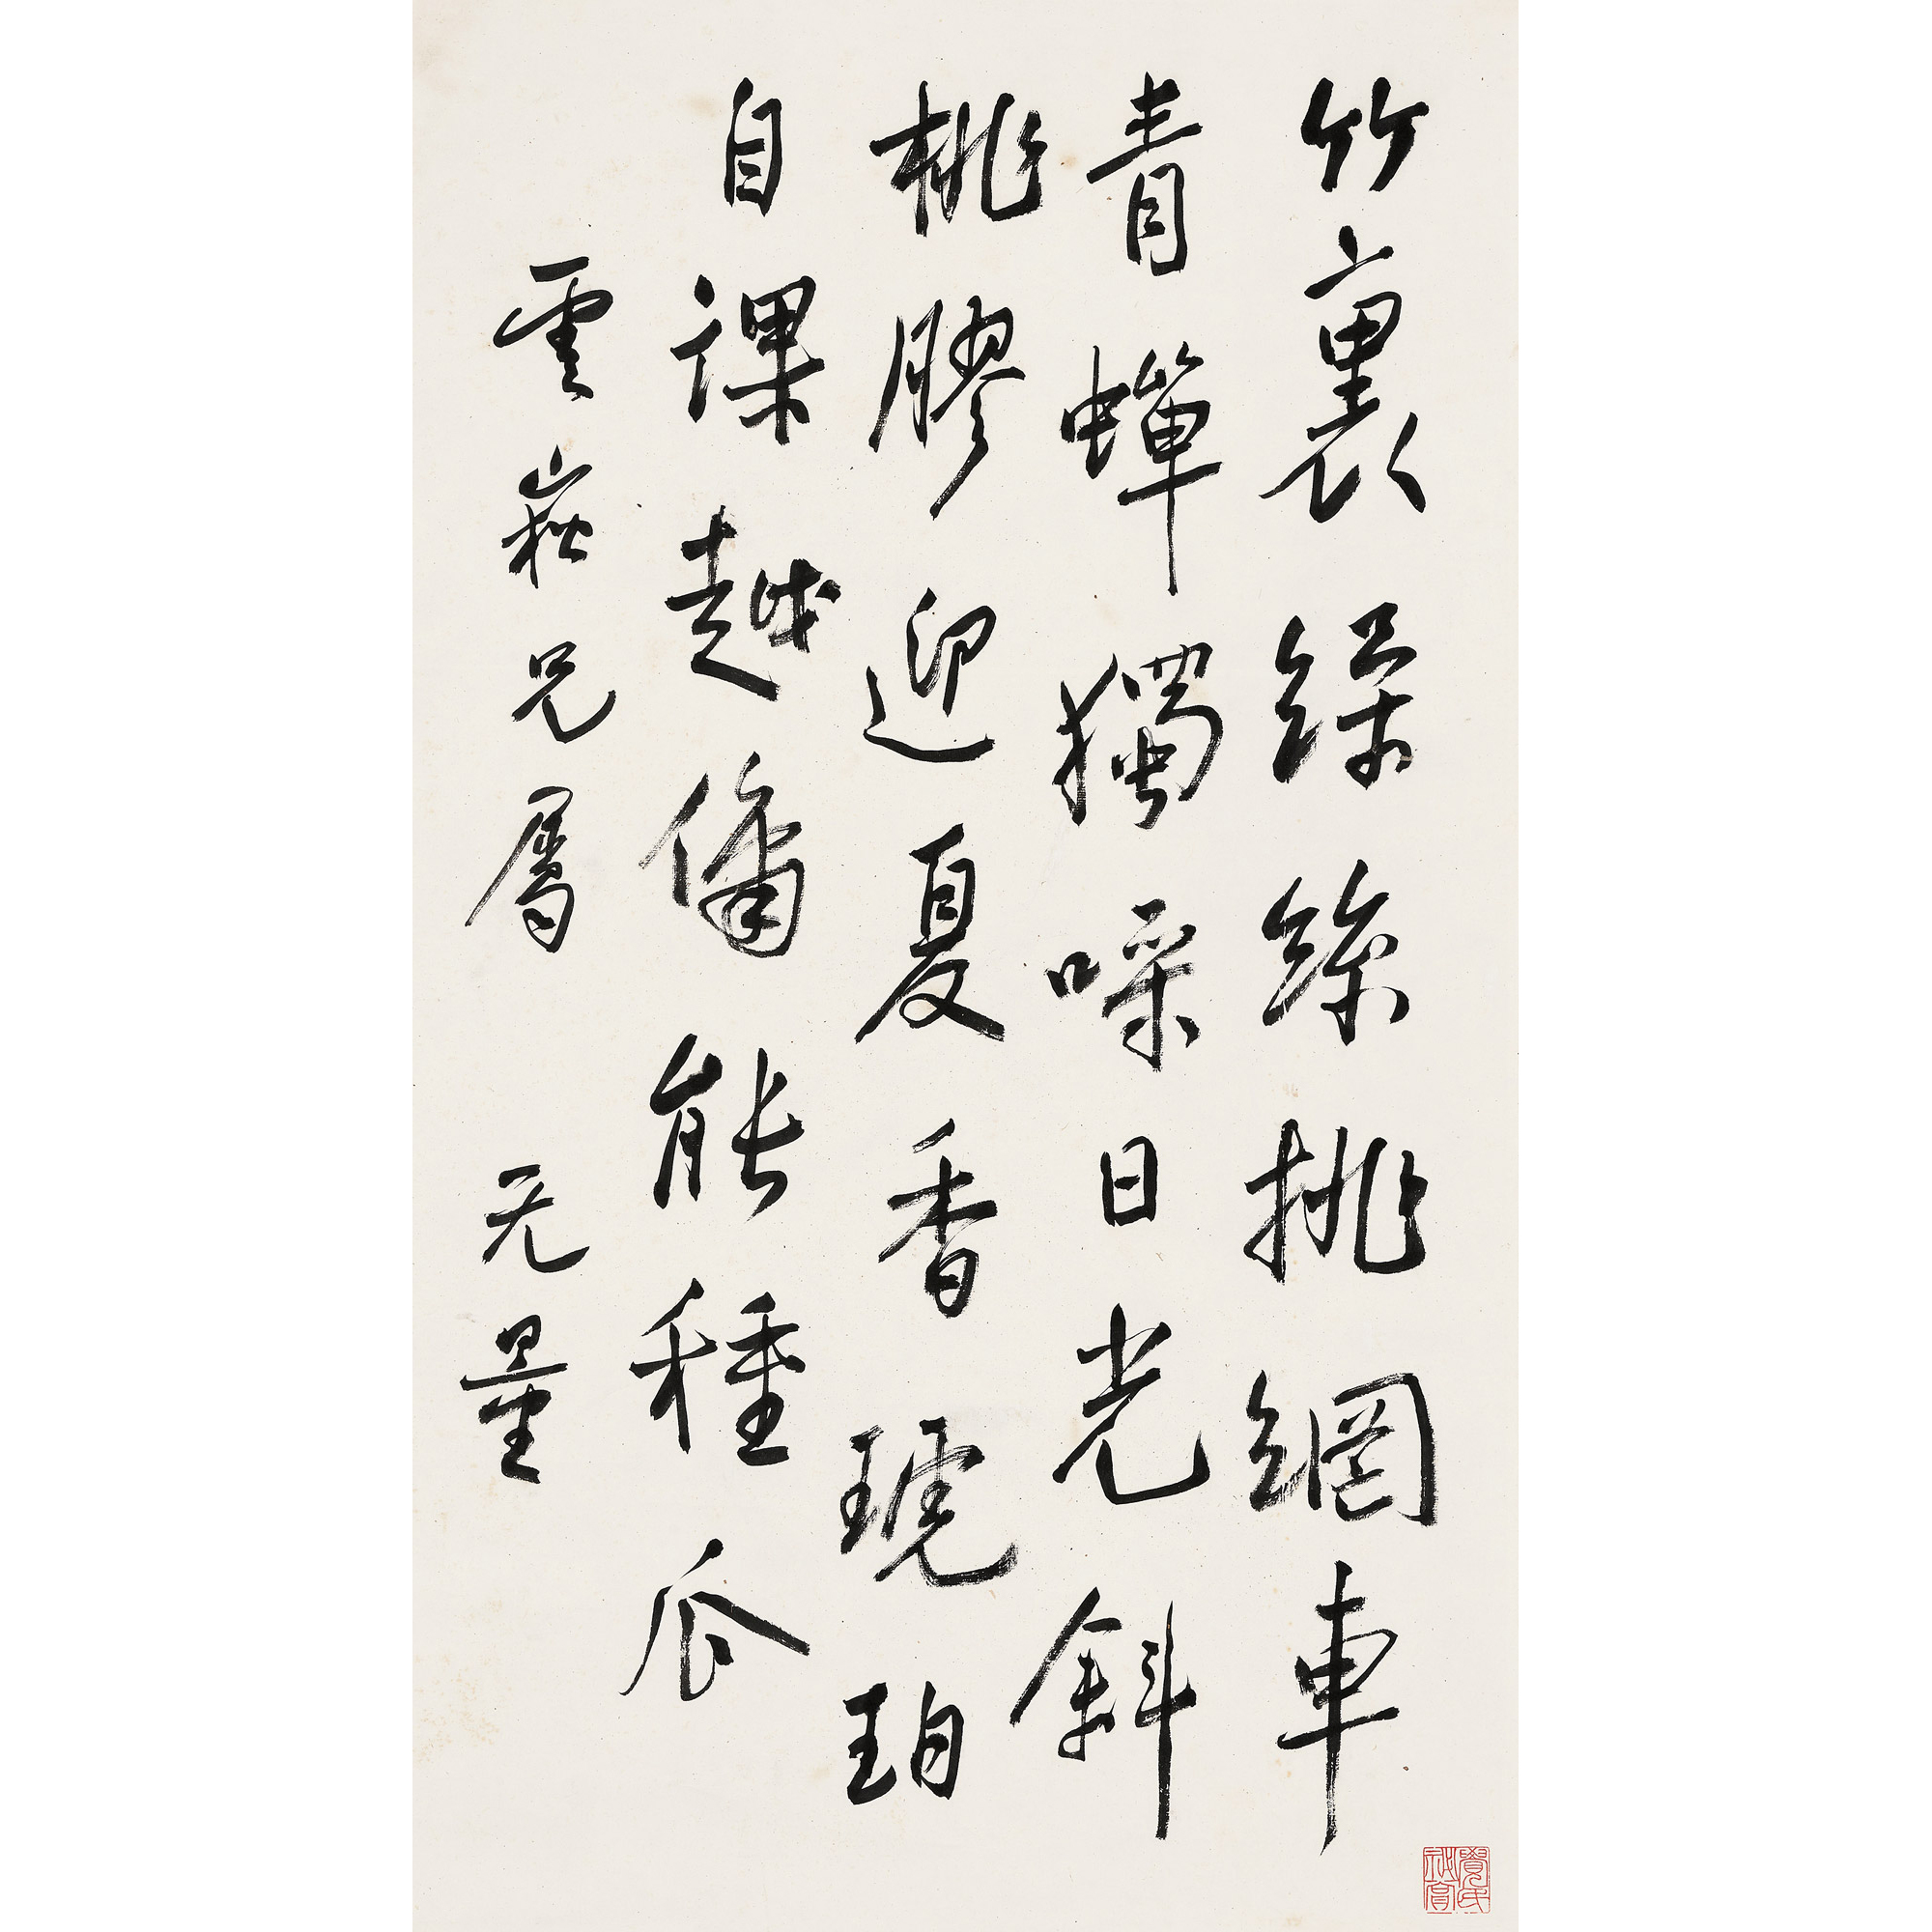 竹裏繰絲挑網車
青蟬獨噪日光斜
桃膠迎夏香琥珀
自課越傭能種瓜
雲崧兄屬 无量